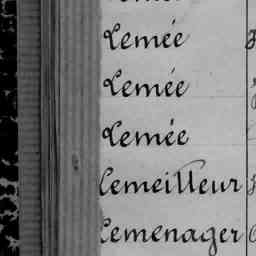 Lemée
Lemée
Lemée
Lemeilleur
Lemenager